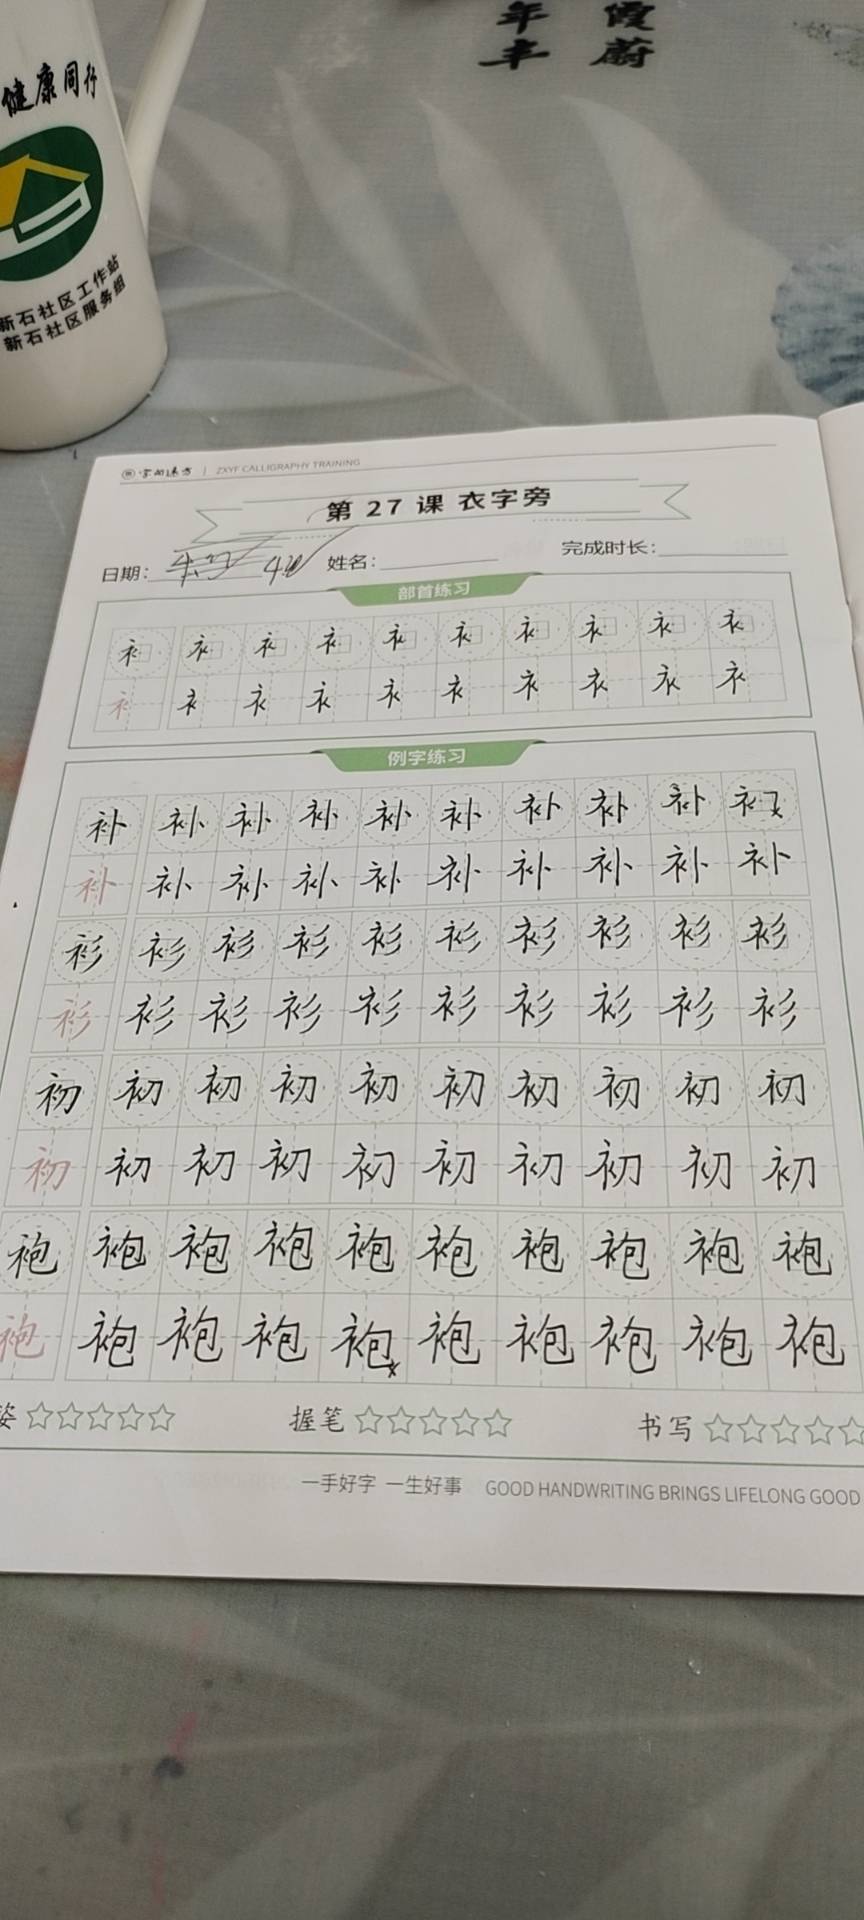 年 霞
丰 蔚
健康同行
新石社区工作站
新石社区服务组
字由远方 | ZXYF CALLIGRAPHY TRAINING
第 27 课 衣字旁
日期: 姓名: 完成时长:
部首练习
衤 衤 衤 衤 衤 衤 衤 衤 衤 衤
衤 衤 衤 衤 衤 衤 衤 衤 衤 衤
例字练习
补 补 补 补 补 补 补 补 补
补 补 补 补 补 补 补 补 补 补
衫 衫 衫 衫 衫 衫 衫 衫 衫 衫
衫 衫 衫 衫 衫 衫 衫 衫 衫 衫
初 初 初 初 初 初 初 初 初 初
初 初 初 初 初 初 初 初 初 初
袍 袍 袍 袍 袍 袍 袍 袍 袍 袍
袍 袍 袍 袍 袍 袍 袍 袍 袍 袍
姿 握笔 书写
一手好字 一生好事 GOOD HANDWRITING BRINGS LIFELONG GOOD